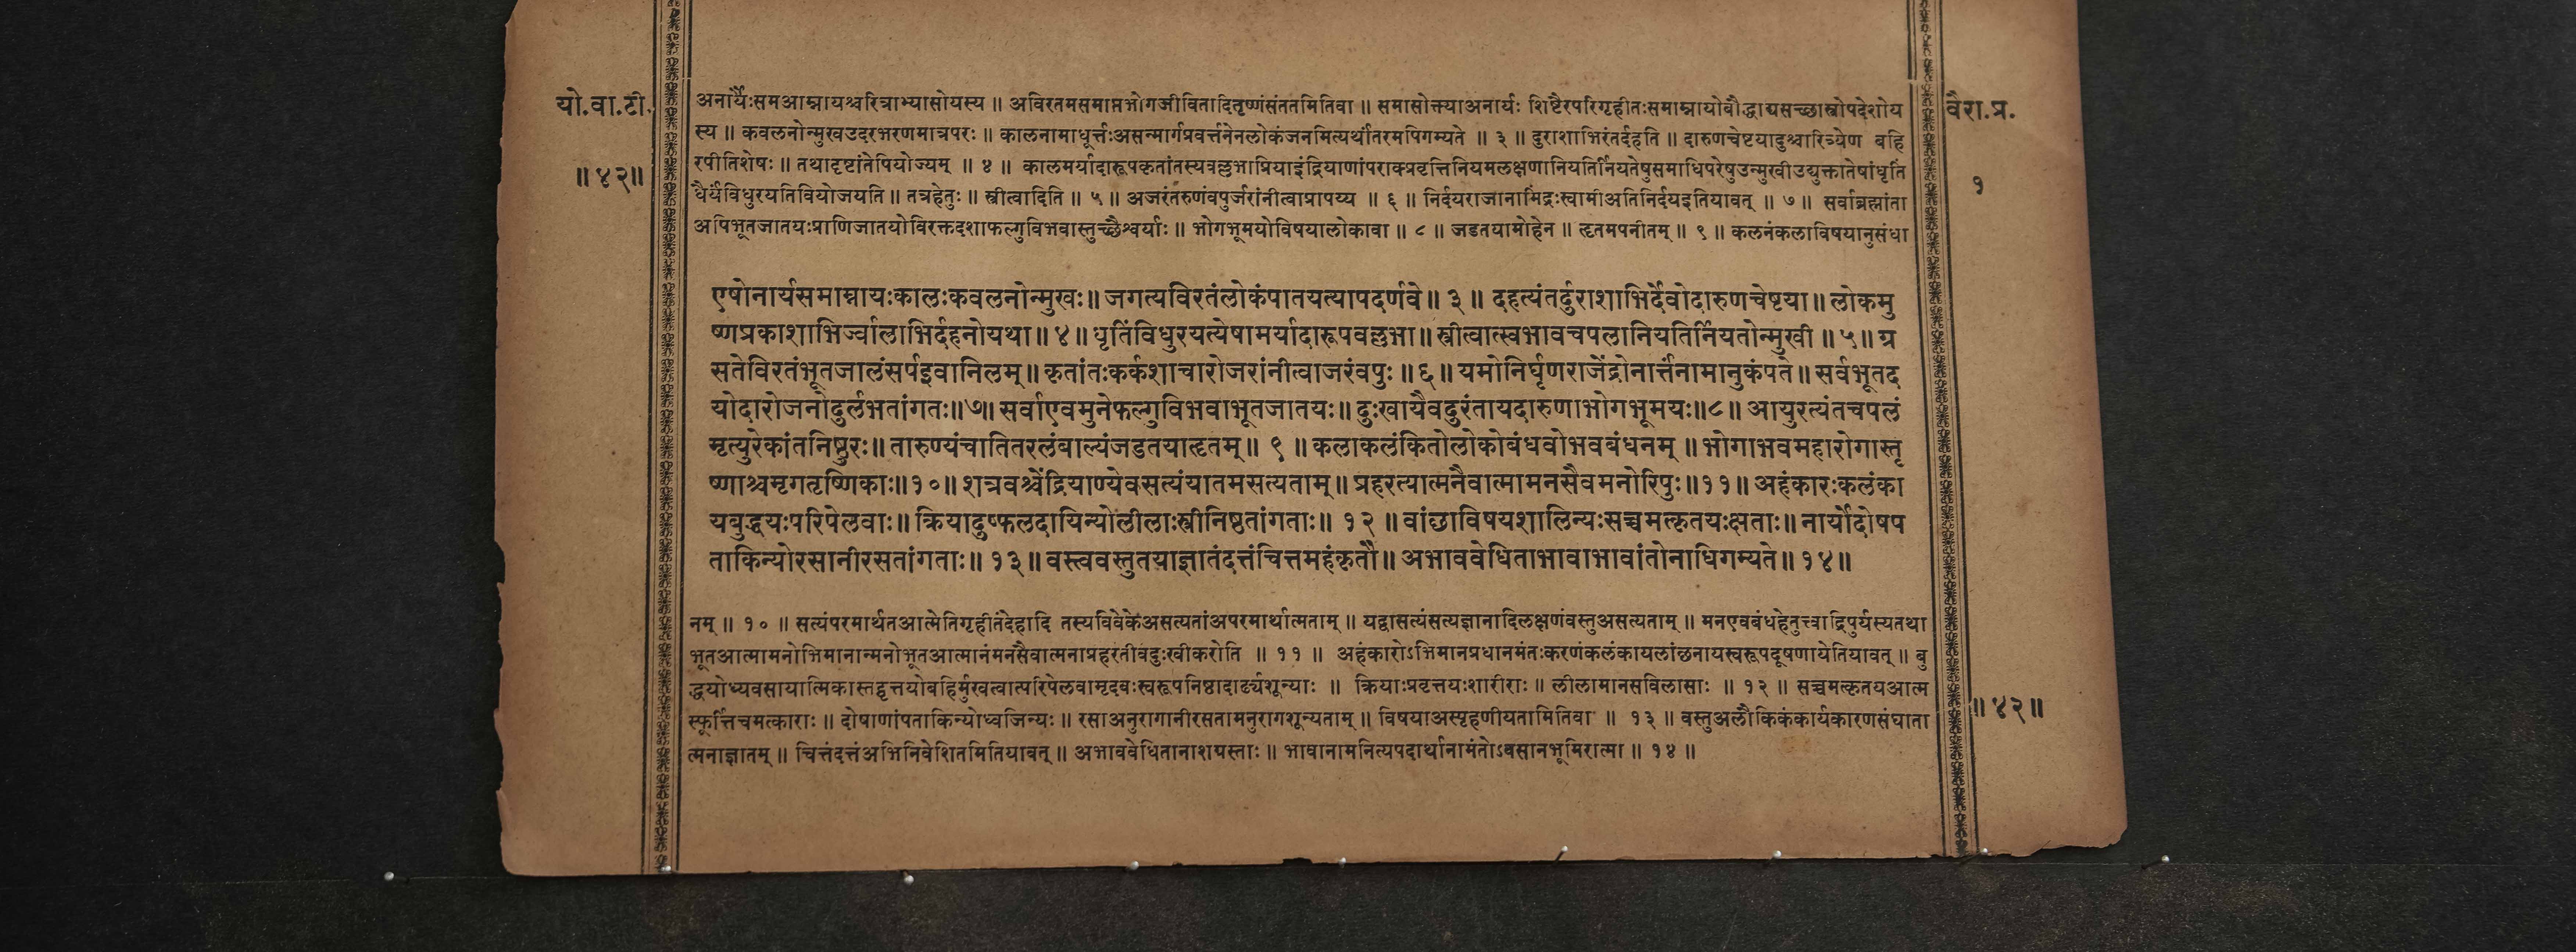 यो.वा.टी.
॥४२॥
वैरा.प्र.
१
अनार्यैःसमआम्नायश्चरित्राभ्यासोयस्य ॥ अविरतमसमाप्तभोगजीवितादितृष्णंसंततमितिवा ॥ समासोक्त्याअनार्यः शिष्टैरपरिगृहीतःसमाम्नायोबौद्धाद्यसच्छास्त्रोपदेशोय
स्य ॥ कवलनोन्मुखउदरभरणमात्रपरः ॥ कालनामाधूर्त्तःअसन्मार्गप्रवर्त्तनेनलोकंजनमित्यर्थांतरमपिगम्यते ॥ ३ ॥ दुराशाभिरंतर्दहति ॥ दारुणचेष्टयादुश्चारित्र्येण बहि
रपीतिशेषः ॥ तथादृष्टांतेपियोज्यम् ॥ ४ ॥ कालमर्यादारूपकृतांतस्यवल्लभाप्रियाइंद्रियाणांपराक्प्रवृत्तिनियमलक्षणानियतिर्नियतेषुसमाधिपरेषुउन्मुखीउद्युक्तातेषांधृतिं
धैर्यंविधुरयतिवियोजयति ॥ तत्रहेतुः ॥ स्त्रीत्वादिति ॥ ५ ॥ अजरंतरुणंवपुर्जरांनीत्वाप्रापय्य ॥ ६ ॥ निर्दयराजानामिंद्रःस्वामीअतिनिर्दयइतियावत् ॥ ७ ॥ सर्वाब्रह्मांता
अपिभूतजातयःप्राणिजातयोविरक्तदशाफल्गुविभवास्तुच्छैश्वर्याः ॥ भोगभूमयोविषयालोकावा ॥ ८ ॥ जडतयामोहेन ॥ हृतमपनीतम् ॥ ९ ॥ कलनंकलाविषयानुसंधा
एषोनार्यसमाम्नायःकालःकवलनोन्मुखः॥ जगत्यविरतंलोकंपातयत्यापदर्णवे॥ ३ ॥ दहत्यंतर्दुराशाभिर्देवोदारुणचेष्टया॥ लोकमु
ष्णप्रकाशाभिर्ज्वालाभिर्दहनोयथा॥ ४॥ धृतिंविधुरयत्येषामर्यादारूपवल्लभा॥ स्त्रीत्वात्स्वभावचपलानियतिर्नियतोन्मुखी ॥ ५॥ ग्र
सतेविरतंभूतजालंसर्पइवानिलम्॥ कृतांतःकर्कशाचारोजरांनीत्वाजरंवपुः ॥ ६॥ यमोनिर्घृणराजेंद्रोनार्त्तंनामानुकंपते॥ सर्वभूतद
योदारोजनोदुर्लभतांगतः॥७॥ सर्वाएवमुनेफल्गुविभवाभूतजातयः॥ दुःखायैवदुरंतायदारुणाभोगभूमयः॥८॥ आयुरत्यंतचपलं
मृत्युरेकांतनिष्ठुरः॥ तारुण्यंचातितरलंबाल्यंजडतयाहृतम्॥ ९ ॥ कलाकलंकितोलोकोबंधवोभवबंधनम् ॥ भोगाभवमहारोगास्तृ
ष्णाश्चमृगतृष्णिकाः॥१०॥ शत्रवश्चेंद्रियाण्येवसत्यंयातमसत्यताम्॥ प्रहरत्यात्मनैवात्मामनसैवमनोरिपुः॥११॥ अहंकारःकलंका
यबुद्धयःपरिपेलवाः॥ क्रियादुष्फलदायिन्योलीलाःस्त्रीनिष्ठतांगताः॥ १२ ॥ वांछाविषयशालिन्यःसच्चमत्कृतयःक्षताः॥ नार्योदोषप
ताकिन्योरसानीरसतांगताः॥ १३॥ वस्त्ववस्तुतयाज्ञातंदत्तंचित्तमहंकृतौ॥ अभाववेधिताभावाभावांतोनाधिगम्यते॥ १४॥
नम् ॥ १० ॥ सत्यंपरमार्थतआत्मेतिगृहीतंदेहादि तस्यविवेकेअसत्यतांअपरमार्थात्मताम् ॥ यद्वासत्यंसत्यज्ञानादिलक्षणंवस्तुअसत्यताम् ॥ मनएवबंधहेतुत्त्वाद्रिपुर्यस्यतथा
भूतआत्मामनोभिमानान्मनोभूतआत्मानंमनसैवात्मनाप्रहरतीवदुःखीकरोति ॥ ११ ॥ अहंकारोऽभिमानप्रधानमंतःकरणंकलंकायलांछनायस्वरूपदूषणायेतियावत् ॥ बु
द्धयोध्यवसायात्मिकास्तद्वृत्तयोबहिर्मुखत्वात्परिपेलवामृदवःस्वरूपनिष्ठादार्ढ्यशून्याः ॥ क्रियाःप्रवृत्तयःशारीराः ॥ लीलामानसविलासाः ॥ १२ ॥ सच्चमत्कृतयआत्म
स्फूर्त्तिचमत्काराः ॥ दोषाणांपताकिन्योध्वजिन्यः ॥ रसाअनुरागानीरसतामनुरागशून्यताम् ॥ विषयाअस्पृहणीयतामितिवा ॥ १३ ॥ वस्तुअलौकिकंकार्यकारणसंघाता
त्मनाज्ञातम् ॥ चित्तंदत्तंअभिनिवेशितमितियावत् ॥ अभाववेधितानाशग्रस्ताः ॥ भावानामनित्यपदार्थानामंतोऽवसानभूमिरात्मा ॥ १४ ॥
॥४२॥